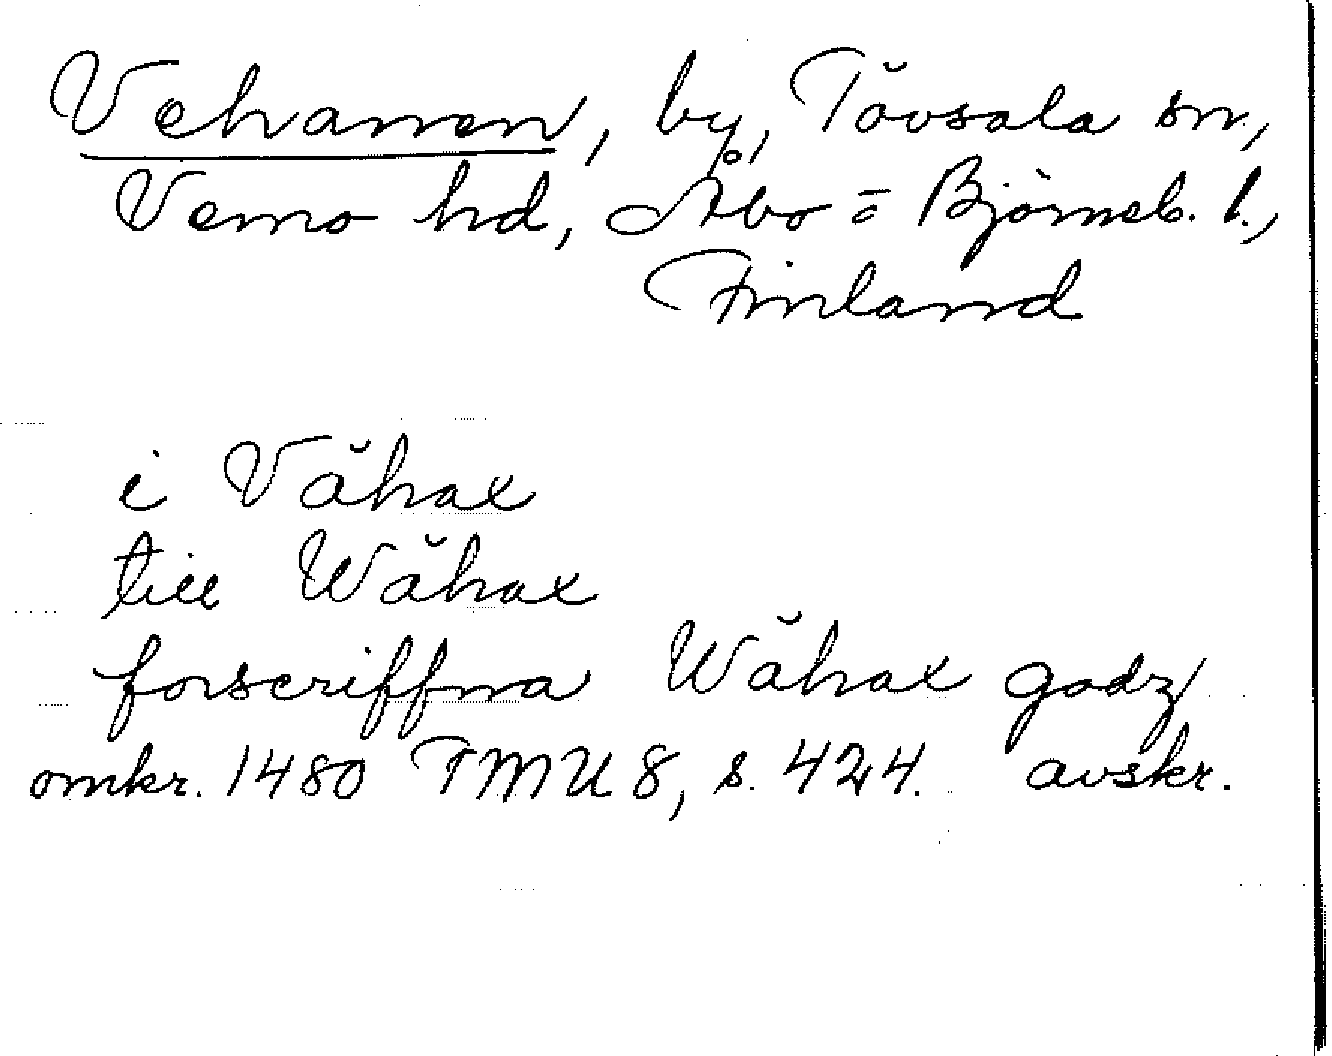 Vehanen, by, Tövsala sn,
Vemo hd, Åbo = Björneb. l.,
Finland
i Våhax
till Wåhax
forscriffna Wåhax godz
omkr. 1480 TMU 8, s. 424. avskr.